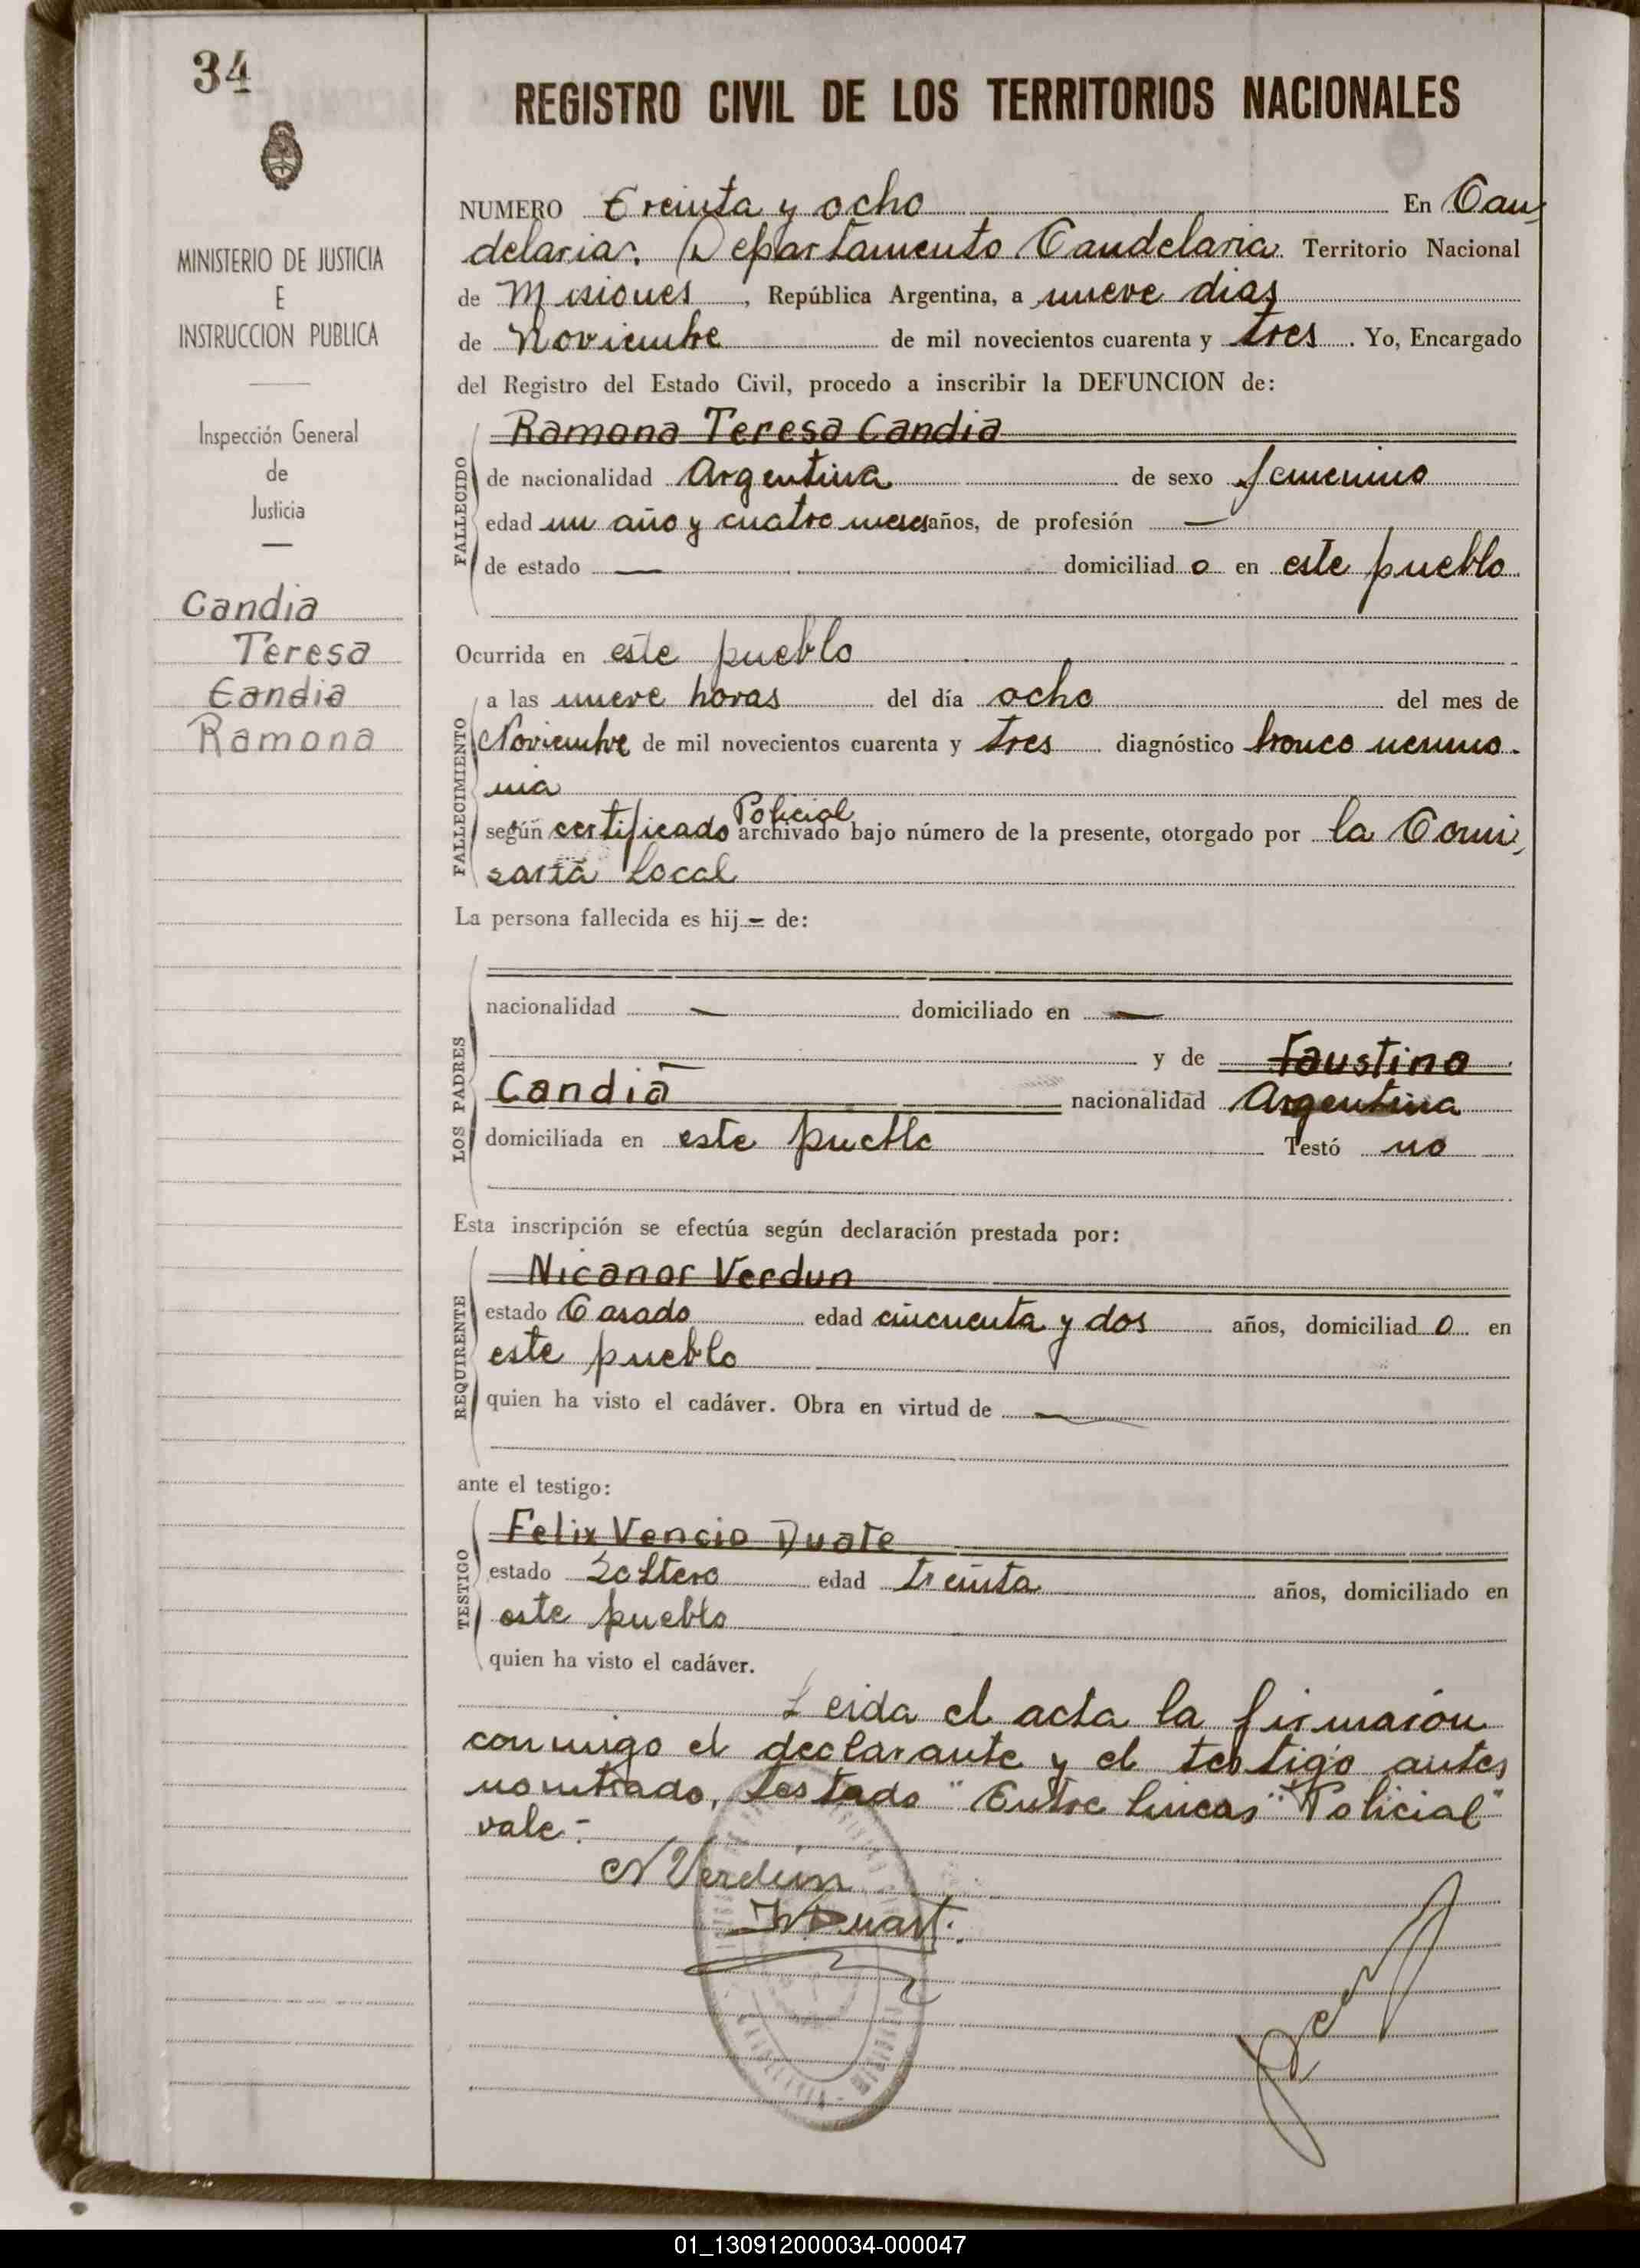 34
MINISTERIO DE JUSTICIA
E
INSTRUCCION PUBLICA
Inspección General
de
Justicia
Candia
Teresa
Candia
Ramona
REGISTRO CIVIL DE LOS TERRITORIOS NACIONALES
NUMERO Treinta y ocho En Can
delaria. Departamento Candelaria Territorio Nacional
de Misiones, República Argentina, a nueve dias
de Noviembre de mil novecientos cuarenta y tres. Yo, Encargado
del Registro del Estado Civil, procedo a inscribir la DEFUNCION de:
FALLECIDO
Ramona Teresa Candia
de nacionalidad Argentina de sexo femenino
edad un año y cuatro meses años, de profesión —
de estado — domiciliado en este pueblo
Ocurrida en este pueblo
FALLECIMIENTO
a las nueve horas del día ocho del mes de
Noviembre de mil novecientos cuarenta y tres diagnóstico bronco neumo-
nia
Policial
según certificado archivado bajo número de la presente, otorgado por la Comi
saria Local
La persona fallecida es hij= de:
LOS PADRES
nacionalidad — domiciliado en —
y de Faustina
Candia nacionalidad Argentina
domiciliada en este pueblo Testó no
Esta inscripción se efectúa según declaración prestada por:
REQUIRENTE
Nicanor Verdun
estado Casado edad cincuenta y dos años, domiciliado en
este pueblo
quien ha visto el cadáver. Obra en virtud de —
ante el testigo:
TESTIGO
Felix Vencio Duate
estado Soltero edad treinta años, domiciliado en
este pueblo
quien ha visto el cadáver.
Leida el acta la firmaron
conmigo el declarante y el testigo antes
nombrado, testado " Entre lineas "Policial"
vale-
N Verdún
Duart.
01_130912000034-000047